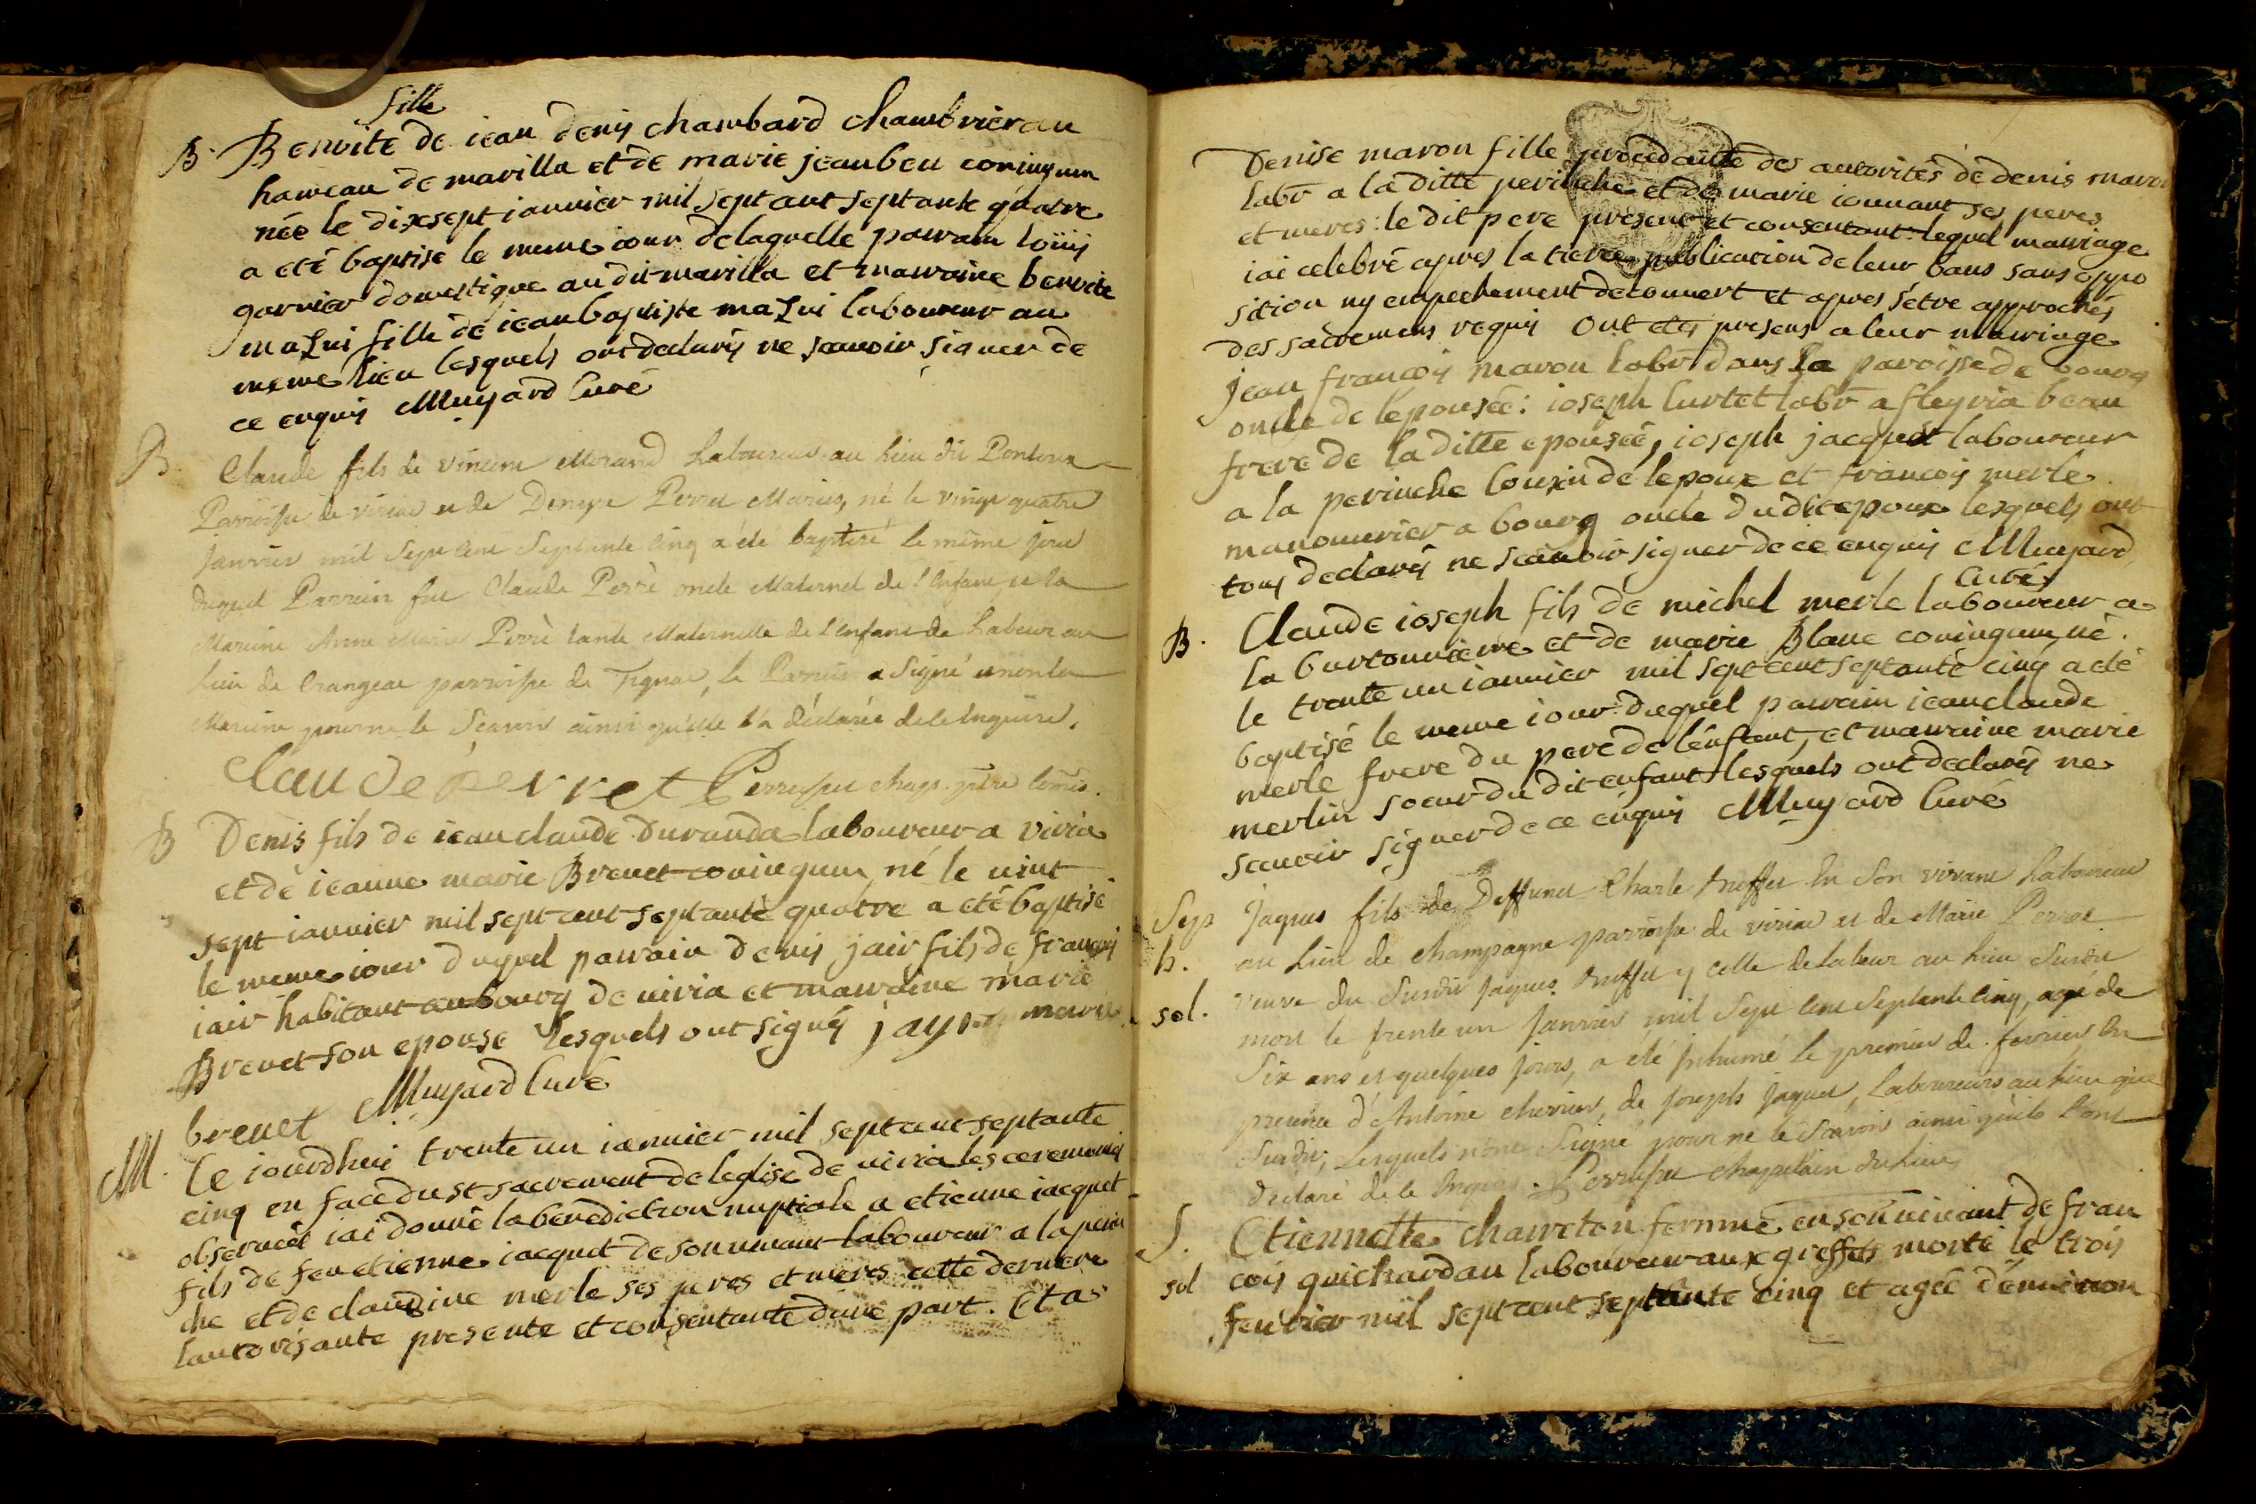 fille
B. Benoite de iean denis chambard chambrier au
hameau de marilla et de marie jeanbeu coniugum
née le dixsept ianvier mil sept cent septante quatre
a eté baptisé le meme iour de laquelle parrain loüis
garnier domestique au dit marilla et marraine benoite
mazui fille de iean baptiste mazui laboureur au
meme lieu lesquels ont declarés ne scavoir signer de
ce enquis Muyard Curé
B. Claude fils de vincent Morand Laboureur au Lieu dit
Parroisse de viriat et de Denyse Perret Mariés, né le vingt quatre
janvier mil Sept Cent Septante Cinq a été baptisé le même jour
duquel Parrein fut Claude Perrè oncle Maternel de l'Enfant, et la
Mareine Anne Marie Perrè tante Maternelle de l'enfant de Labeur au
Lieu de Crangeac parroisse de, le Parrein a Signé et non la
Mareine pour ne le Scavoir ainsi qu'elle l'a déclarée de le Enquise.
Claude perret
B Denis fils de iean claude Duranda laboureur a viria
et de ieanne marie Brevet coniugum, né le vint
sept ianvier mil sept cent septante quatre a eté baptisé
le meme iour duquel parrain denis jair fils de françois
iair habitant au bourg de viria et marraine marie
Brevet son epouse lesquels ont signés jayr marie
brevet Muyard Curé
M. Ce iourdhui trente un ianvier mil sept cent septante
cinq en face du st sacrement de leglise de viria les ceremonies
observées iai donné la benediction nuptiale a etienne iacquet
fils de feu etienne iacquet de son vivant laboureur a la perin
che et de claudine merle ses peres et meres cette derniere
lautorisante presente et consentante dune part. Et a
Denise maron fille procedante des autorités de denis maron
labr a la ditte perinche et de marie ionnant ses peres
et meres: le dit pere present et consentant lequel mariage
iai celebré apres la tierce publication de leur bans sans oppo
sition ny empechement decouvert et apres s'etre approchés
des sacremens requis Ont etés presens a leur mariage
jean françois maron labr dans la paroisse de bourg
oncle de lepousée: ioseph Curtet labr a fleyria beau
frere de la ditte epousée, ioseph jacquet laboureur
a la perinche Cousin de lepoux et françois merle
manouvrier a bourg oncle du dit epoux lesquels ont
tous declarés ne scavoir signer de ce enquis Muyard
Curé
B. Claude ioseph fils de michel merle laboureur a
la burtonniere et de marie Blanc coniugum, né
le trente un ianvier mil sept cent septante cinq a eté
baptisé le meme iour duquel parrain iean claude
merle frere du pere de lenfant, et marraine marie
merlin soeur du dit enfant lesquels ont declarés ne
scavoir signer de ce enquis Muyard Curé
Sep Jaques fils de Deffunct Charle En Son vivant Laboureur
h. au Lieu de champagne parroisse de viriat et de Marie Perret
sol. veuve du Susdit y celle de Labeur au Lieu Susdit
mort le trente un Janvier mil Sept Cent Septante Cinq, agé de
Six ans et quelques jours, a été Inhumé le premier de fevrier En
presence d'Antoine chevrier, de Joseph Jaquet, Laboureurs au Lieu que
Susdit, Lesquels n'ont Signé pour ne le Scavoir ainsi qu'ils l'ont
declaré de le Enquis. chapelain du Lieu
S. Etiennette charreton femme en son vivant de fran
sol çois guichardan laboureur aux greffets morte le trois
fevrier mil sept cent septante cinq et agée d'environ